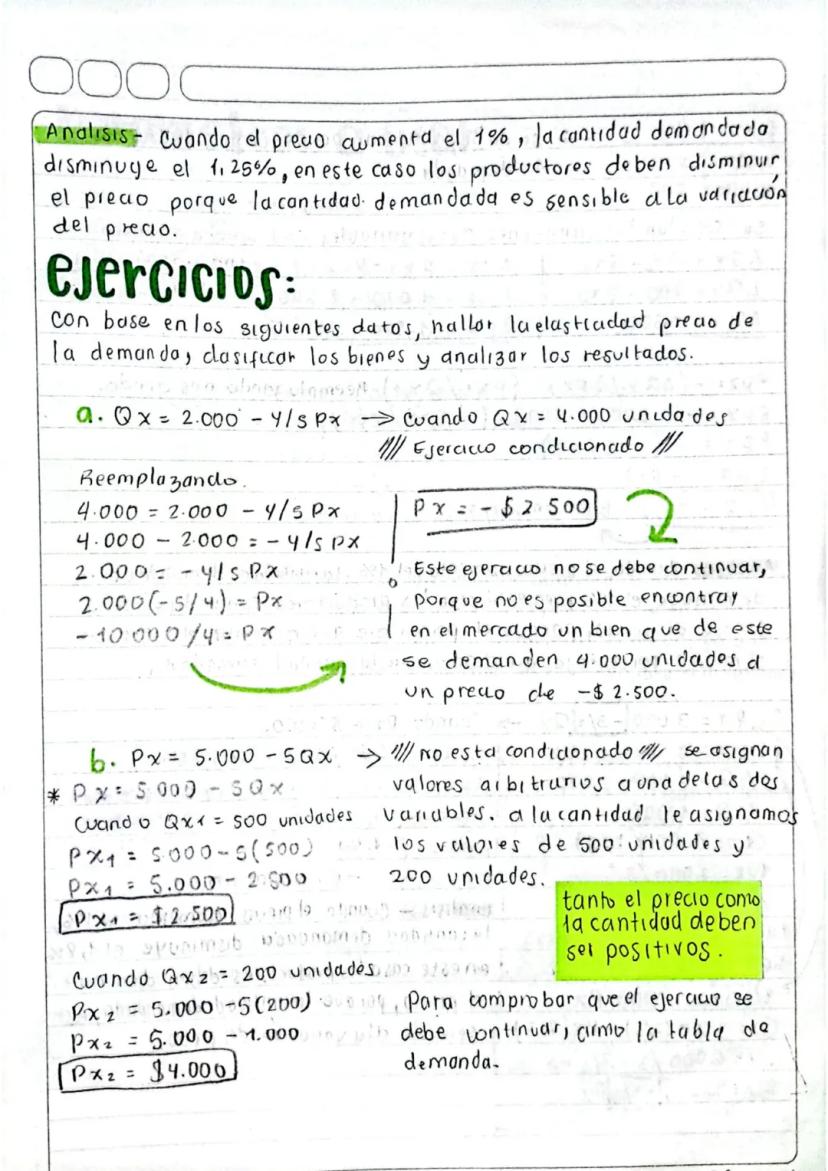 Analisis - Cuando el precio aumenta el 1%, la cantidad demandada
disminuye el 1,25%, en este caso los productores deben disminuir
el precio porque la cantidad demandada es sensible a la variación
del precio.
ejercicios:
con base en los siguientes datos, hallar la elasticidad precio de
la demanda, clasificar los bienes y analizar los resultados.
a. Qx = 2.000 - 4/5 Px → Cuando Qx = 4.000 unidades
//// Ejercicio condicionado ///
Reemplazando.
4.000 = 2.000 - 4/5 Px
4.000 - 2.000 = - 4/5 Px
2.000 = - 4/5 Px
2.000 (-5/4) = Px
- 10 000/4 = Px
Px = - $ 2 500
Este ejercicio no se debe continuar,
porque no es posible encontrar
en el mercado un bien que de este
se demanden 4.000 unidades a
un precio de -$ 2.500.
b. Px = 5.000 - 5Qx → //// no esta condicionado //// se asignan
valores arbitrarios a una de las dos
variables. a la cantidad le asignamos
los valores de 500 unidades y
200 unidades.
* Px = 5 000 - 5Qx
Cuando Qx1 = 500 unidades
Px1 = 5.000 - 5(500)
Px1 = 5.000 - 2.500
Px1 = $ 2.500
tanto el precio como
la cantidad deben
ser positivos.
Cuando Qx2 = 200 unidades
Px2 = 5.000 - 5(200)
Px2 = 5.000 - 1.000
Px2 = $4.000
Para comprobar que el ejercicio se
debe continuar, armo la tabla de
demanda.